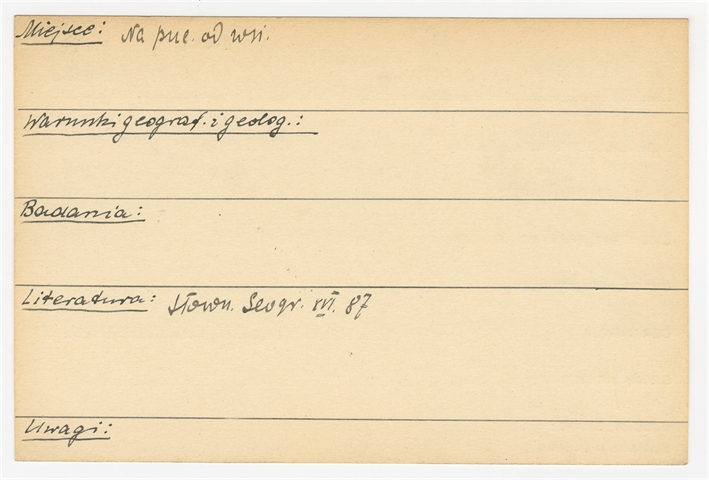 Miejsce: Na płc. od wsi.
Warunki geograf. i geolog.:
Badania:
Literatura: Słown. Geogr. XVI. 87
Uwagi: